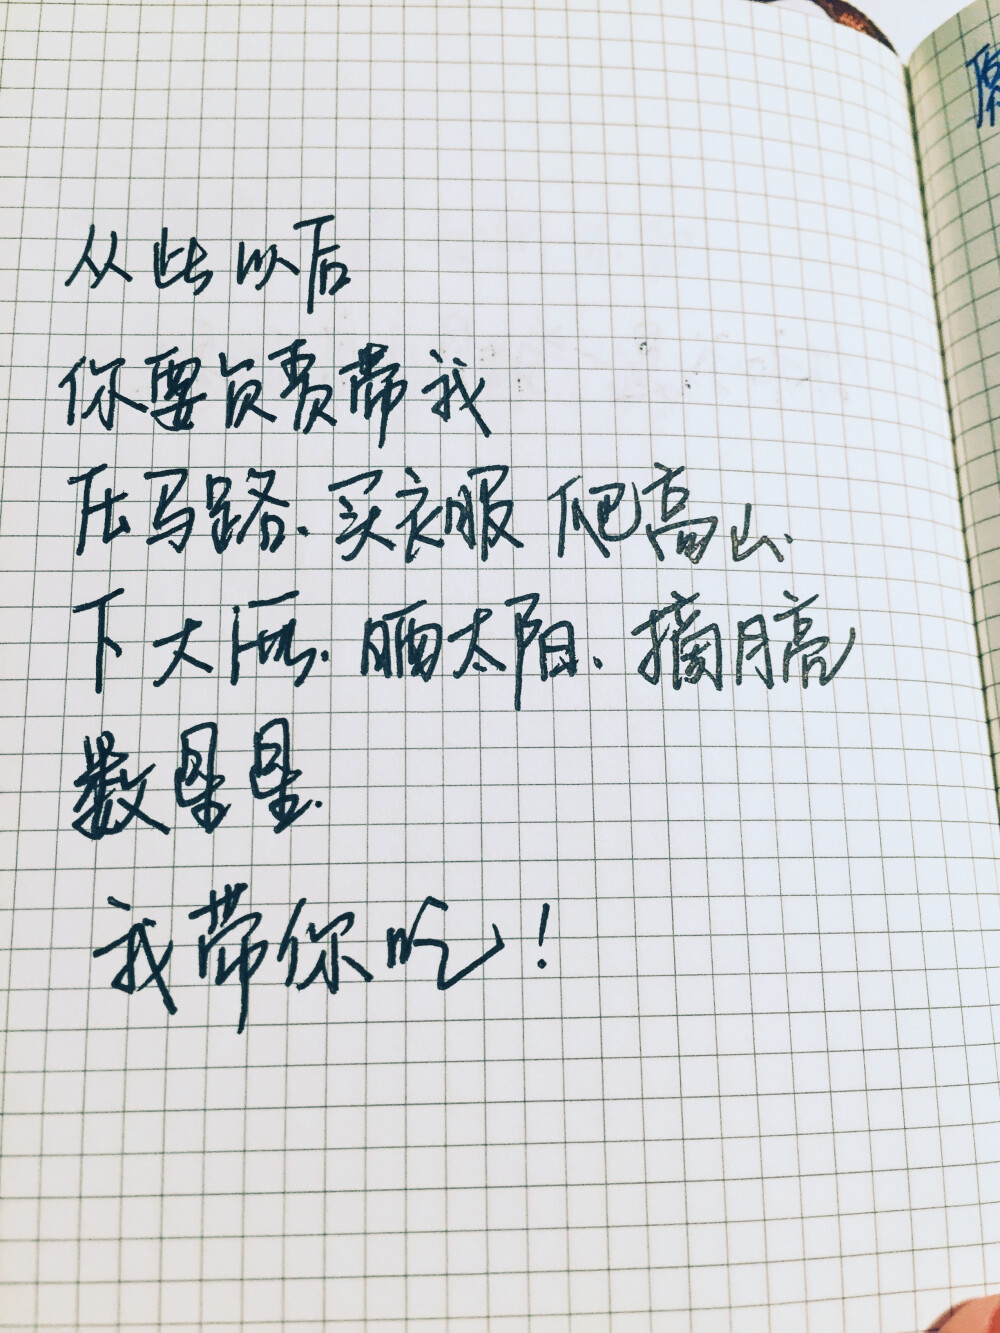 从此以后
你要负责带我
压马路、买衣服 爬高山、
下大雨、晒太阳、摘月亮
数星星、
我带你吃！